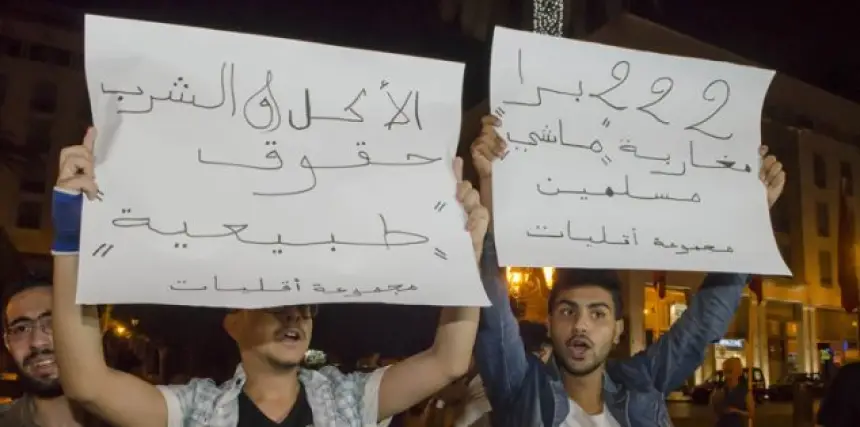 الأكل و الشرب
حقوق
"طبيعية"
مجموعة أقليات
222 برا
مغاربة "ماشي"
مسلمين
مجموعة أقليات